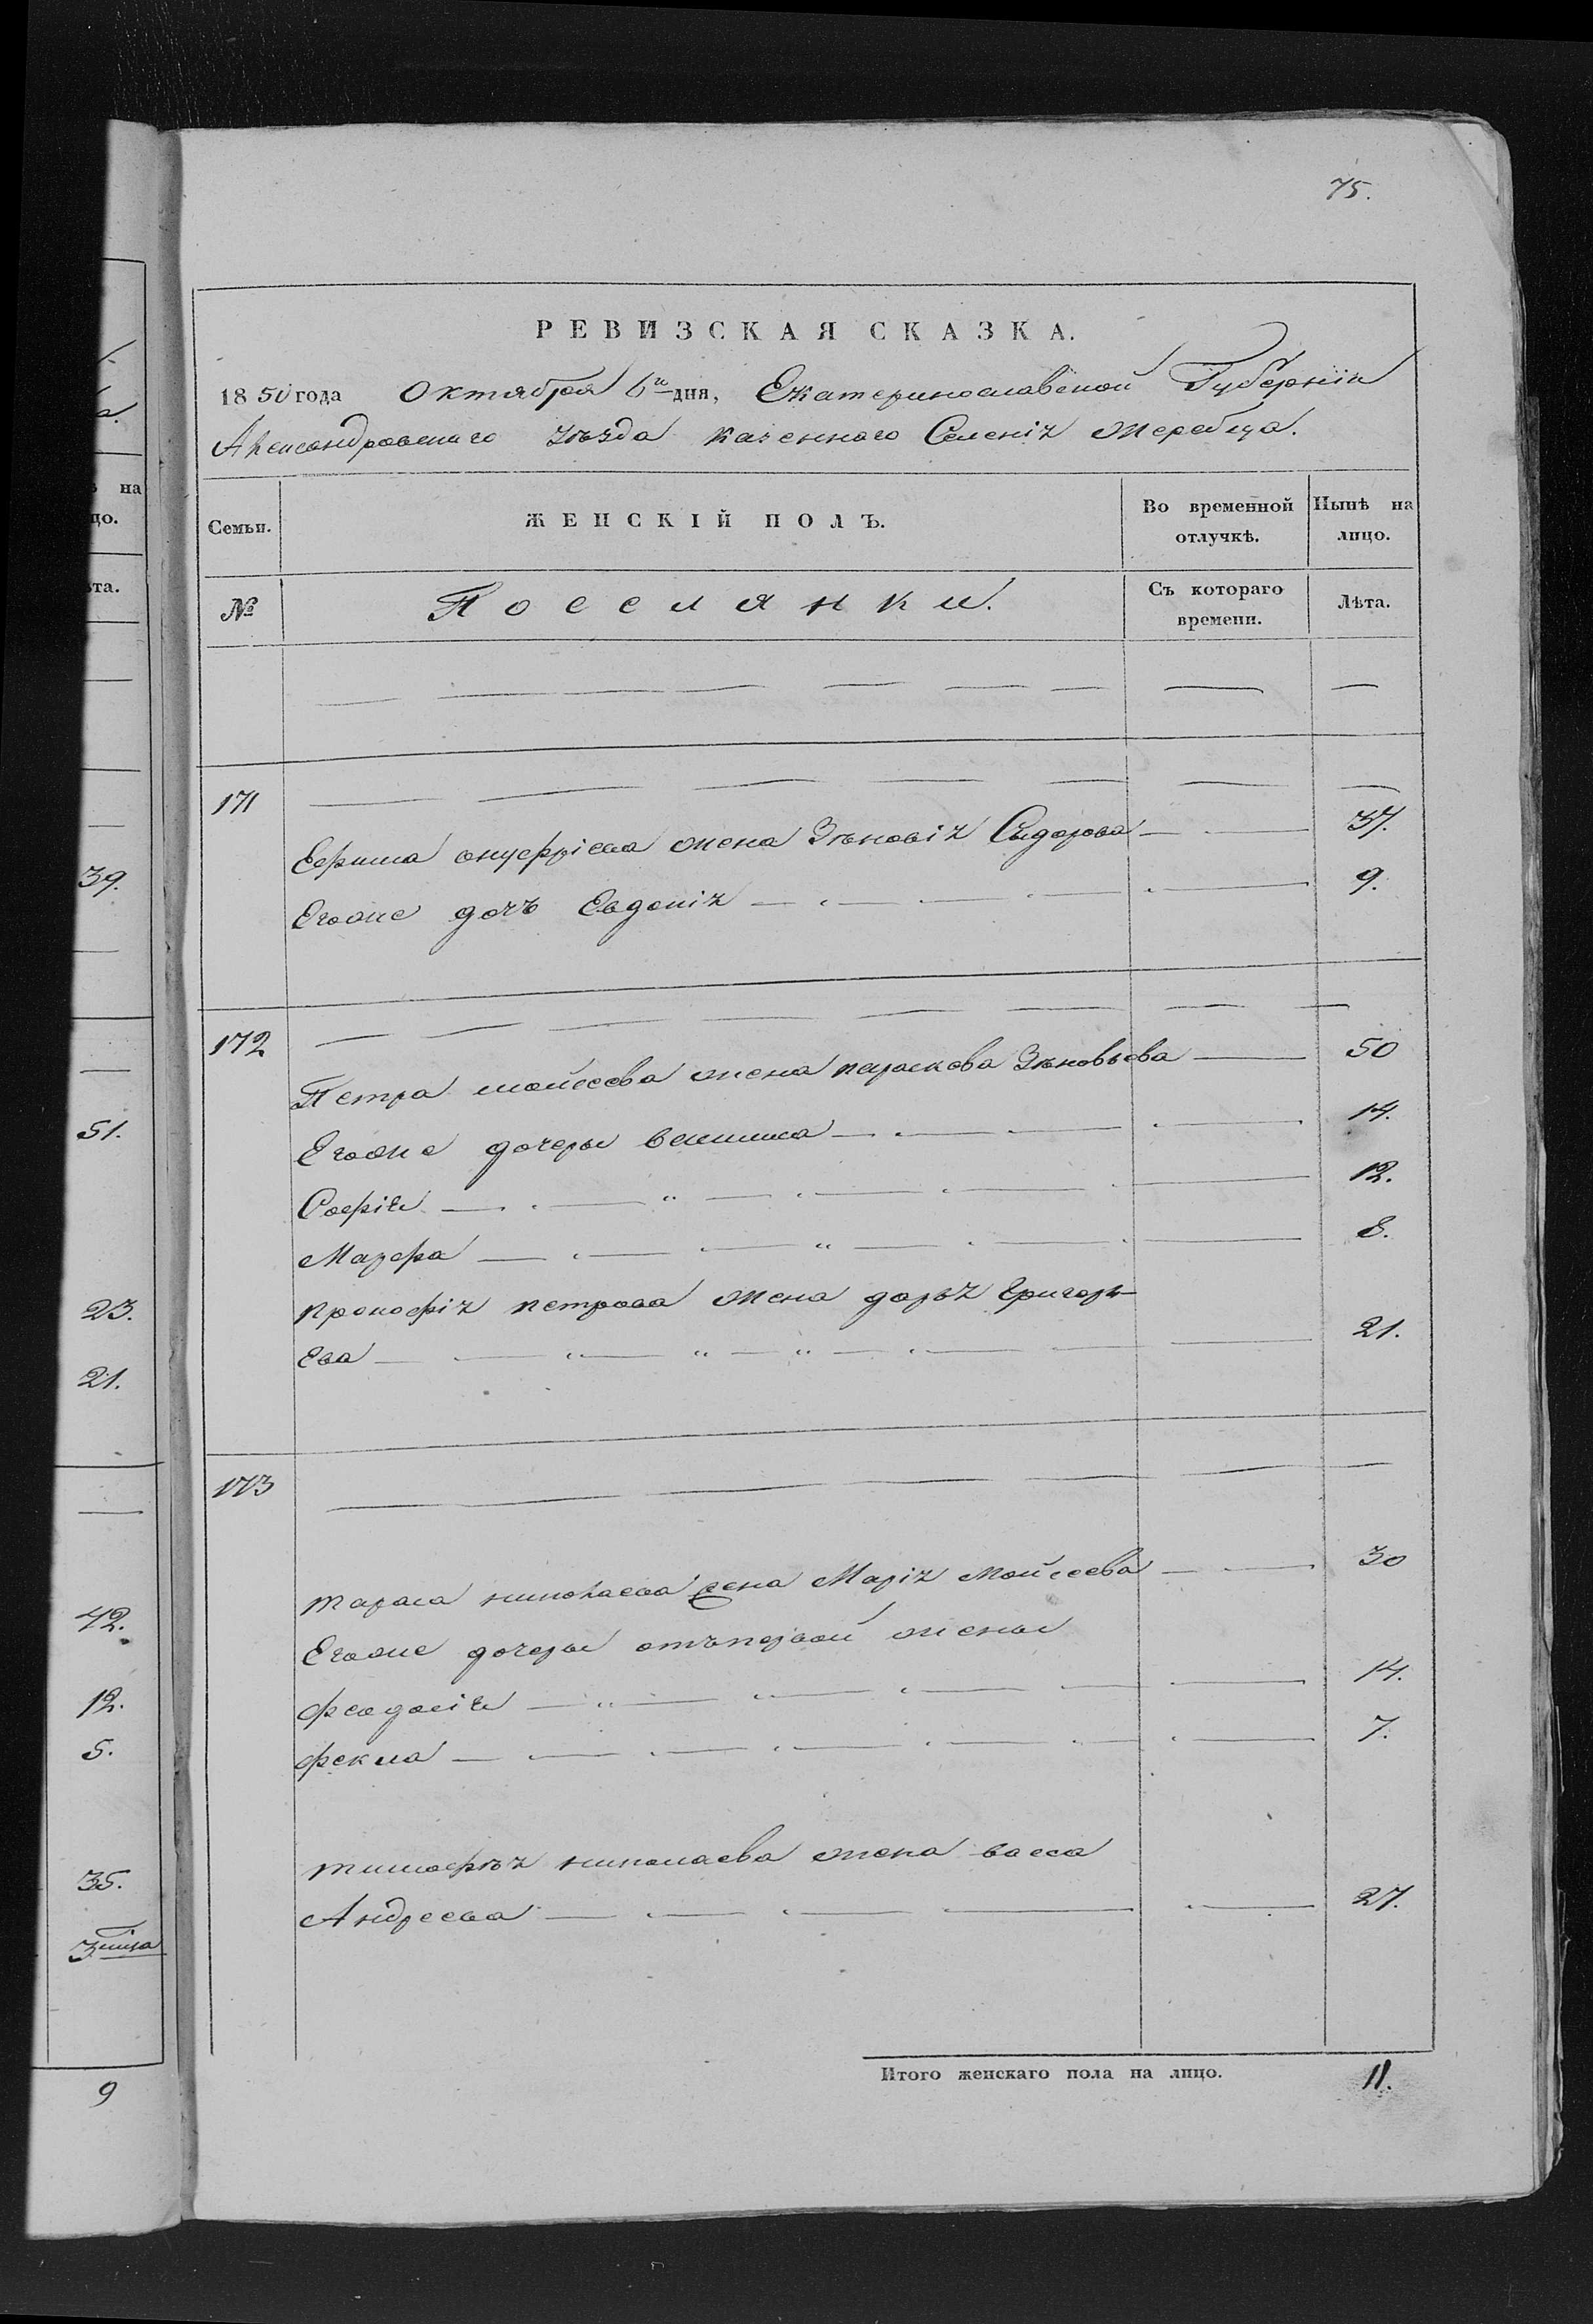 75.
РЕВИЗСКАЯ СКАЗКА.
1850 года Октября 6го дня, Екатеринославской Губерніи
Александровскаго уѣзда казеннаго Селенія жеребца.
Семьи.
ЖЕНСКІЙ ПОЛЪ.
Во временной отлучкѣ.
Нынѣ на лицо.
№
Поселянки.
Съ котораго времени.
Лѣта.
171
Ефима онуфріева жена Зѣновія Сыдорова 37.
Егоже дочь Евдокія 9.
172
Петра мойсеева жена параскова Зѣновьева 50
Егоже дочеры 14.
Софія 12.
Марфа 8.
прокофія петрова жена дарья Григорь-
ева 21.
173
тараса николаева жена Марія Мойсеева 30
Егоже дочеры отъ первой жены
феодосія 14.
фекла 7.
тимофѣя николаева жена васса
Андреева 27.
Итого женскаго пола на лицо. 11.
на
цо.
та.
39.
51.
23.
21.
42.
12.
5.
35.
9